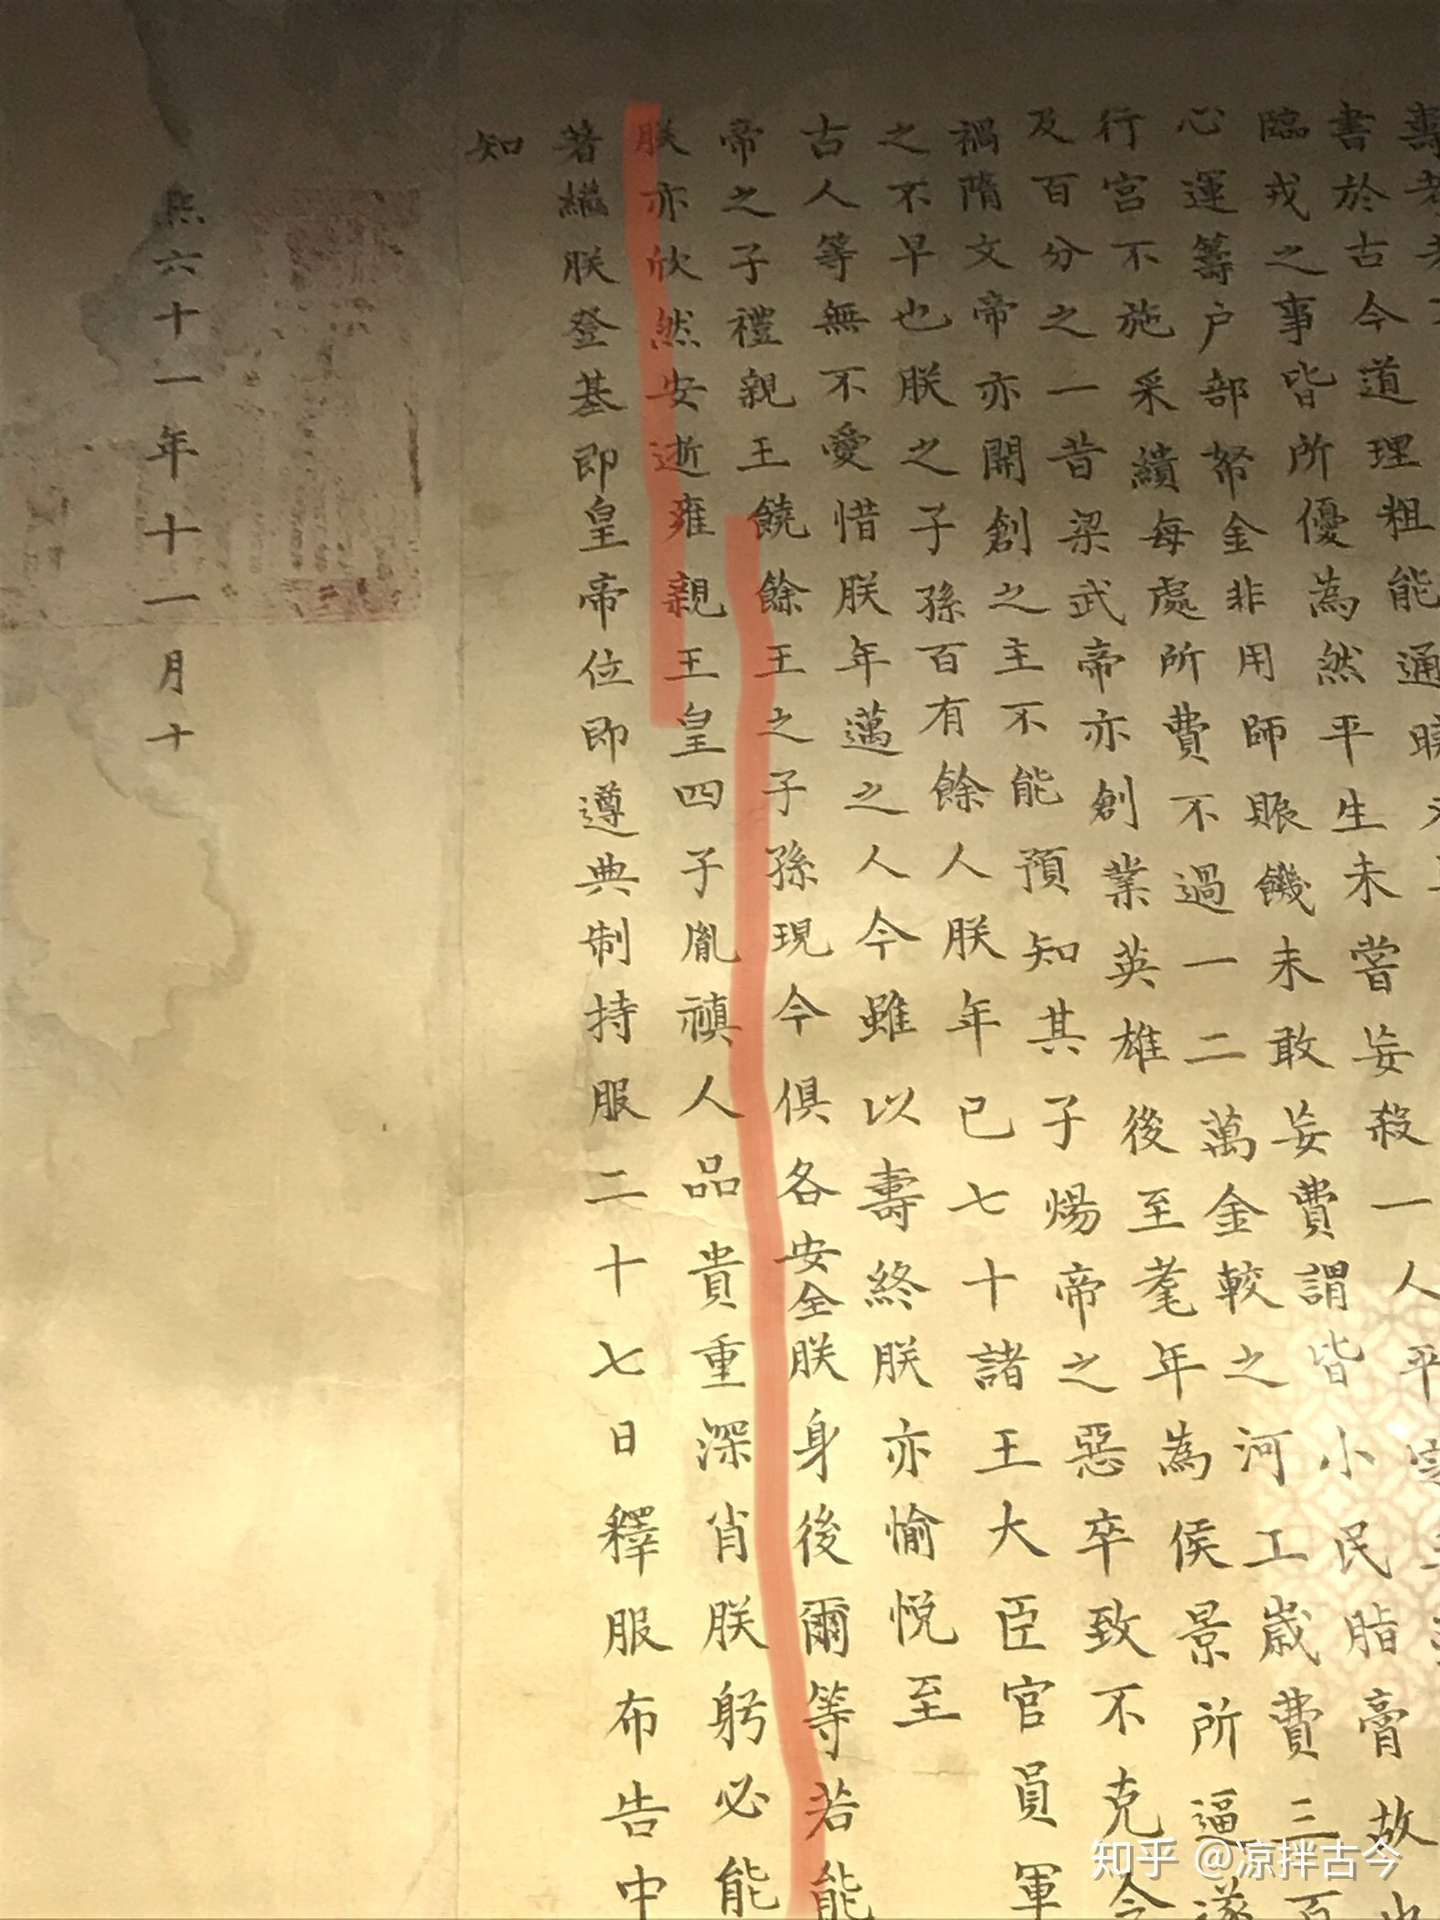 書於古今道理粗能通
臨戎之事皆所優為然平生未嘗妄殺一人平
心運籌户部帑金非用師賑饑未敢妄費謂皆小民脂膏故
行宮不施采繢每處所費不過一二萬金較之河工歲費三百
及百分之一昔梁武帝亦創業英雄後至耄年為侯景所逼遂
禍隋文帝亦開創之主不能預知其子煬帝之惡卒致不克令
之不早也朕之子孫百有餘人朕年已七十諸王大臣官員軍
古人等無不愛惜朕年邁之人今雖以壽終朕亦愉悅至
帝之子禮親王饒餘王之子孫現今俱各安全朕身後爾等若能
朕亦欣然安逝雍親王皇四子胤禛人品貴重深肖朕躬必能
著繼朕登基即皇帝位即遵典制持服二十七日釋服布告中
知
熙六十一年十一月十
知乎 @凉拌古今